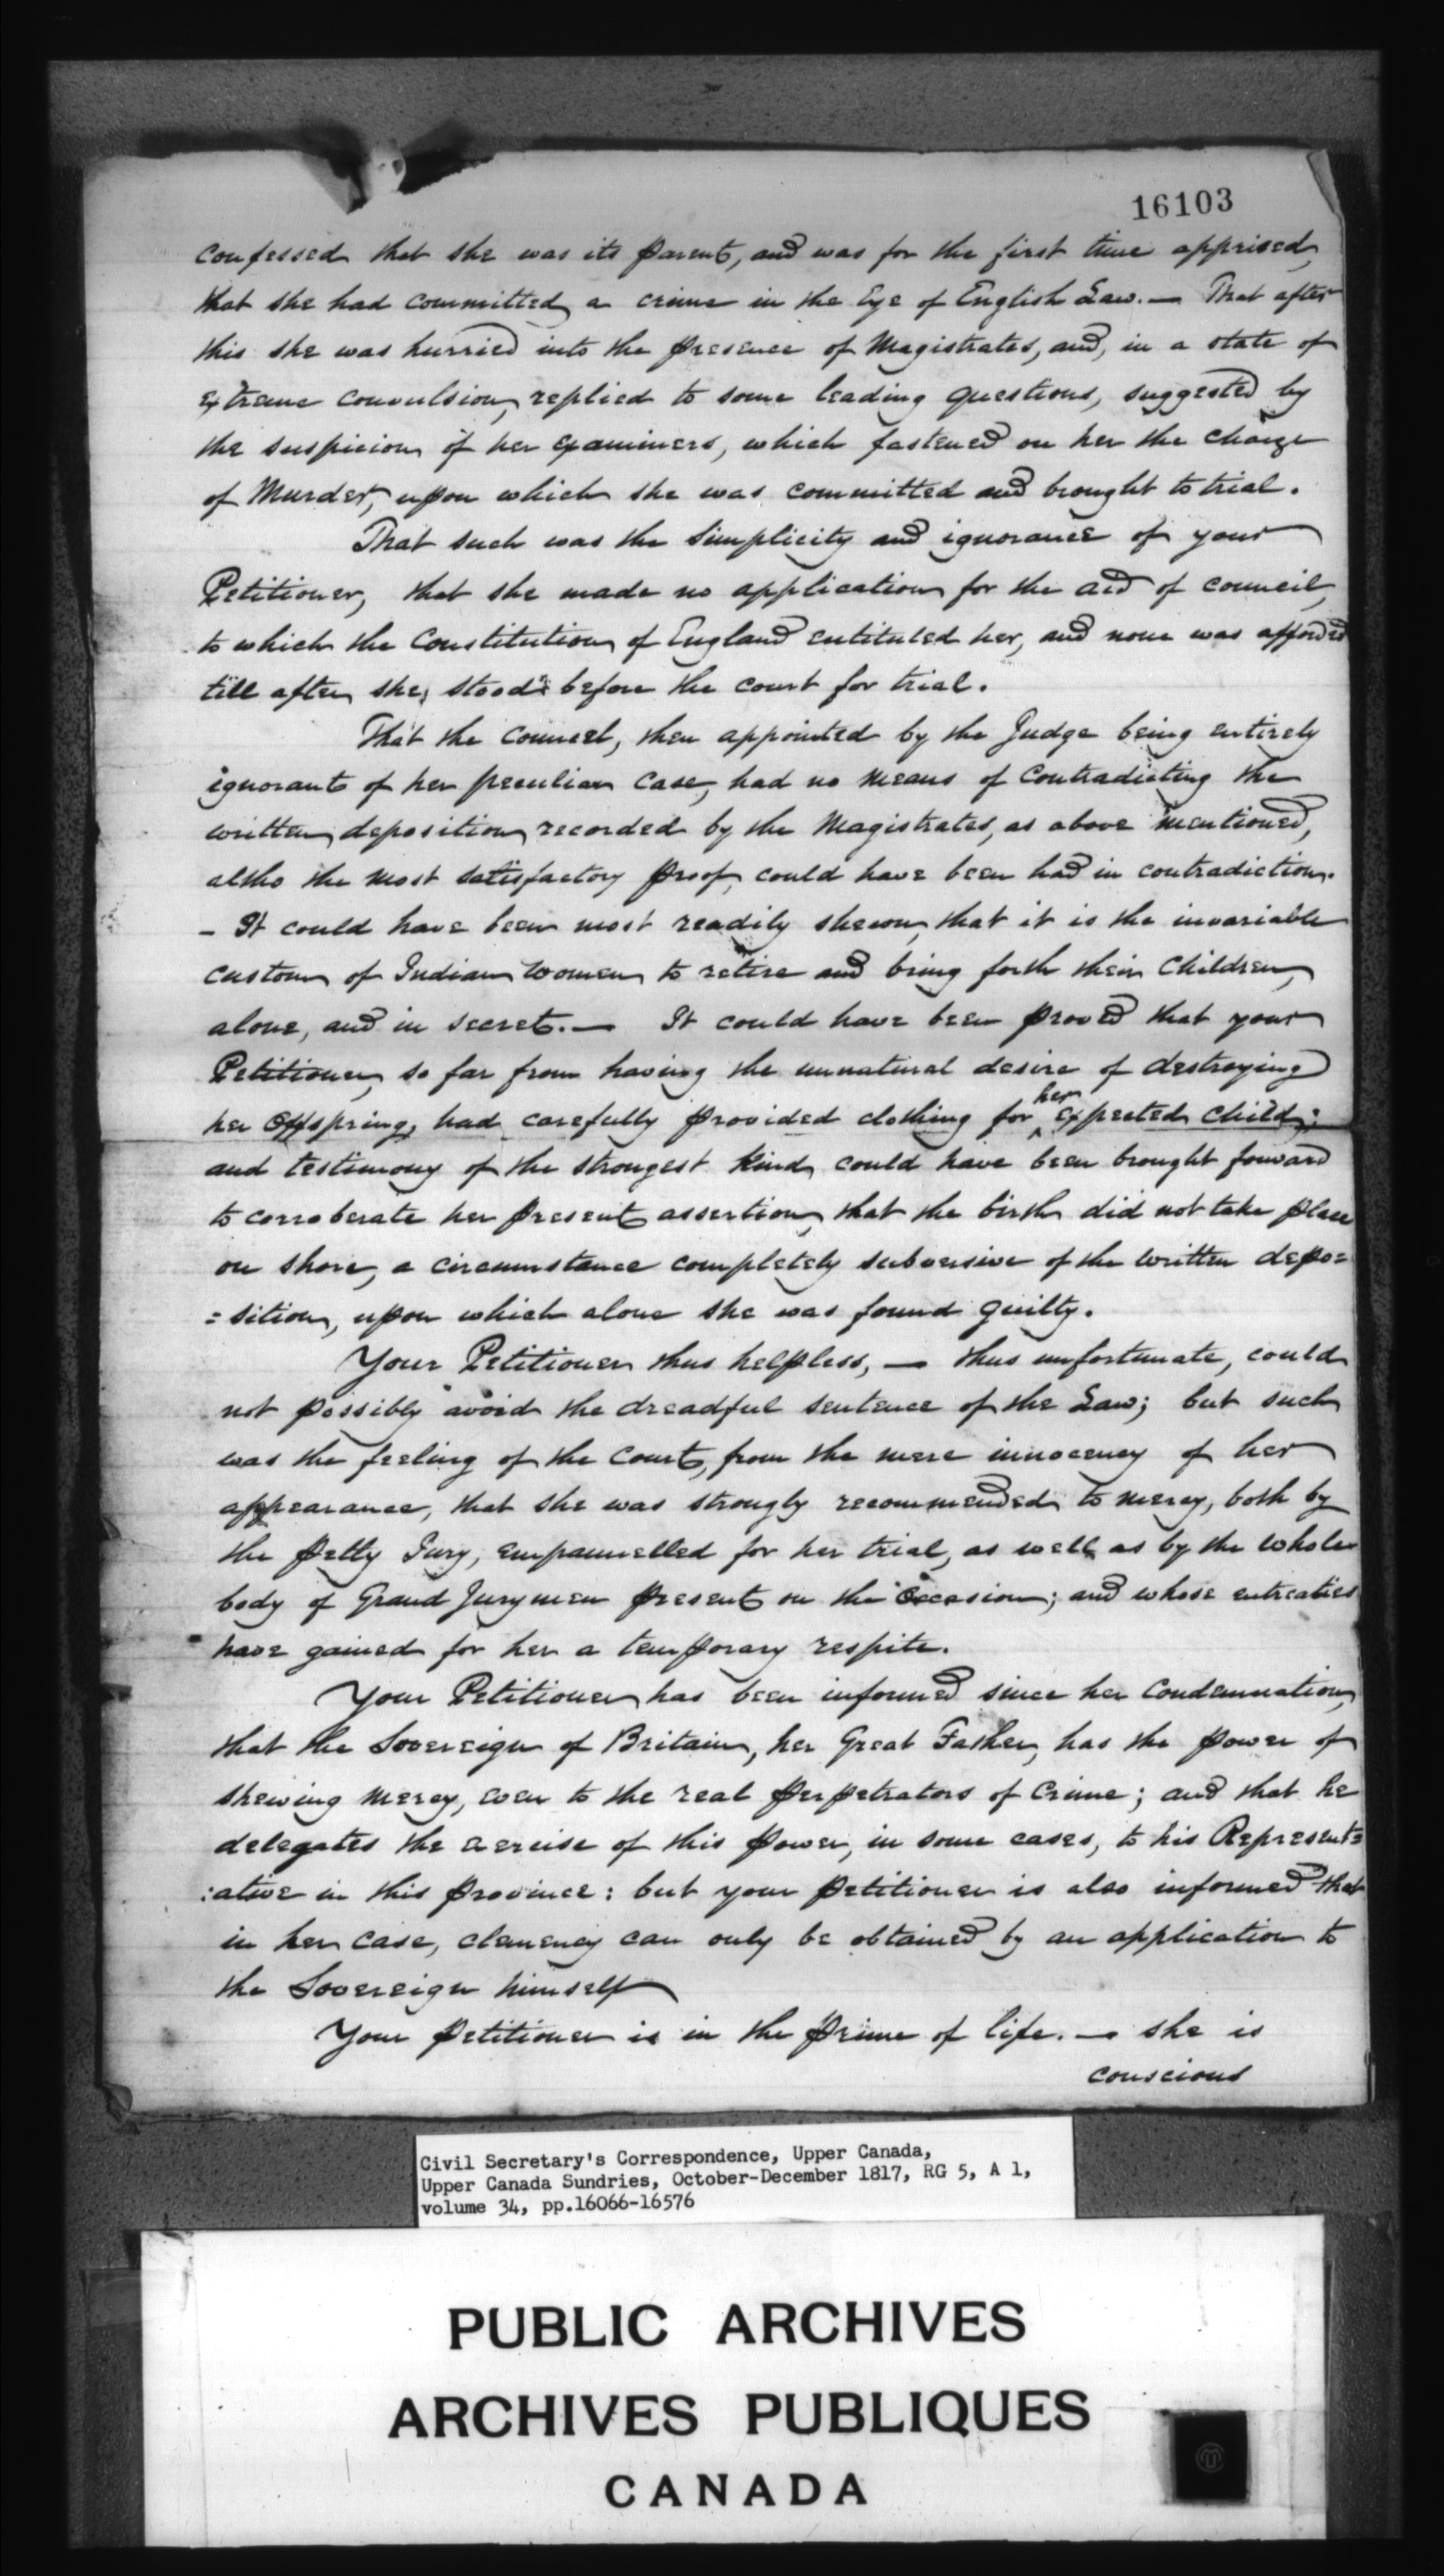 16103
confessed that she was its parent, and was for the first time apprised,
that she had committed a crime in the Eye of English Law. — That after
this she was hurried into the presence of Magistrates, and, in a state of
extreme convulsion, replied to some leading questions, suggested by
the suspicion of her examiners, which fastened on her the charge
of Murder, upon which she was committed and brought to trial.
That such was the simplicity and ignorance of your
Petitioner, that she made no application for the aid of council,
to which the Constitution of England entituled her, and none was afforded
till after she stood before the court for trial.
That the Counsel, then appointed by the Judge being entirely
ignorant of her peculiar case, had no means of contradicting the
written deposition recorded by the Magistrates, as above mentioned,
altho the most satisfactory proof, could have been had in contradiction.
- It could have been most readily shewn, that it is the invariable
custom of Indian women to retire and bring forth their Children,
alone, and in secret. — It could have been proved that your
Petitioner, so far from having the unnatural desire of destroying
her offspring, had carefully provided clothing for her expected child;
and testimony of the strongest kind, could have been brought forward
to corroberate her present assertion, that the birth did not take place
on shore, a circumstance completely subversive of the written depo=
=sition, upon which alone she was found guilty.
Your Petitioner thus helpless, — thus unfortunate, could
not possibly avoid the dreadful sentence of the Law; but such
was the feeling of the Court, from the mere innocency of her
appearance, that she was strongly recommended to mercy, both by
the petty Jury, empannelled for her trial, as well as by the whole
body of Grand Jurymen present on the Occasion; and whose entreaties
have gained for her a temporary respite.
Your Petitioner has been informed since her condemnation,
that the Sovereign of Britain, her Great Father, has the power of
shewing mercy, even to the real perpetrators of Crime; and that he
delegates the exercise of this power, in some cases, to his Represent=
:ative in this province: but your petitioner is also informed that
in her case, clemency can only be obtained by an application to
the Sovereign himself
Your petitioner is in the prime of life. — she is
conscious
Civil Secretary's Correspondence, Upper Canada,
Upper Canada Sundries, October-December 1817, RG 5, A 1,
volume 34, pp.16066-16576
PUBLIC ARCHIVES
ARCHIVES PUBLIQUES
CANADA